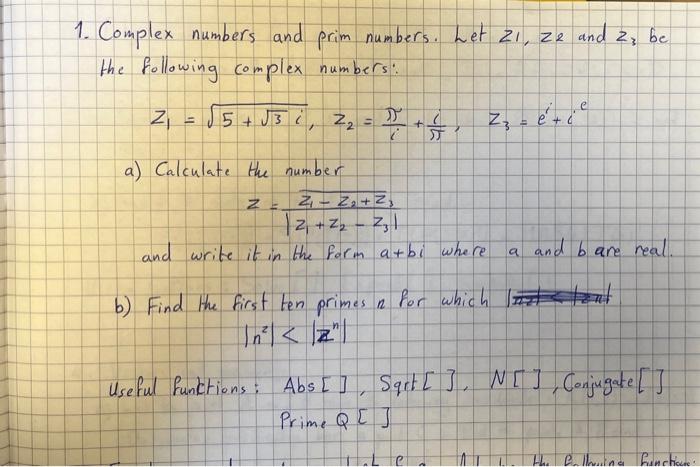 1. Complex numbers and prim numbers. Let z1, z2 and z₃ be
the following complex numbers:
z₁ = √(5 + √3 i), z₂ = π/i + i/π, z₃ = eⁱ + iᵉ
a) Calculate the number
z = \overline{z₁ - z₂ + z₃} / |z₁ + z₂ - z₃|
and write it in the form a+bi where a and b are real.
b) Find the first ten primes n for which
|n²| < |zⁿ|
Useful Funktions: Abs[ ], Sqrt[ ], N[ ], Conjugate[ ]
Prime Q[ ]
the following functions